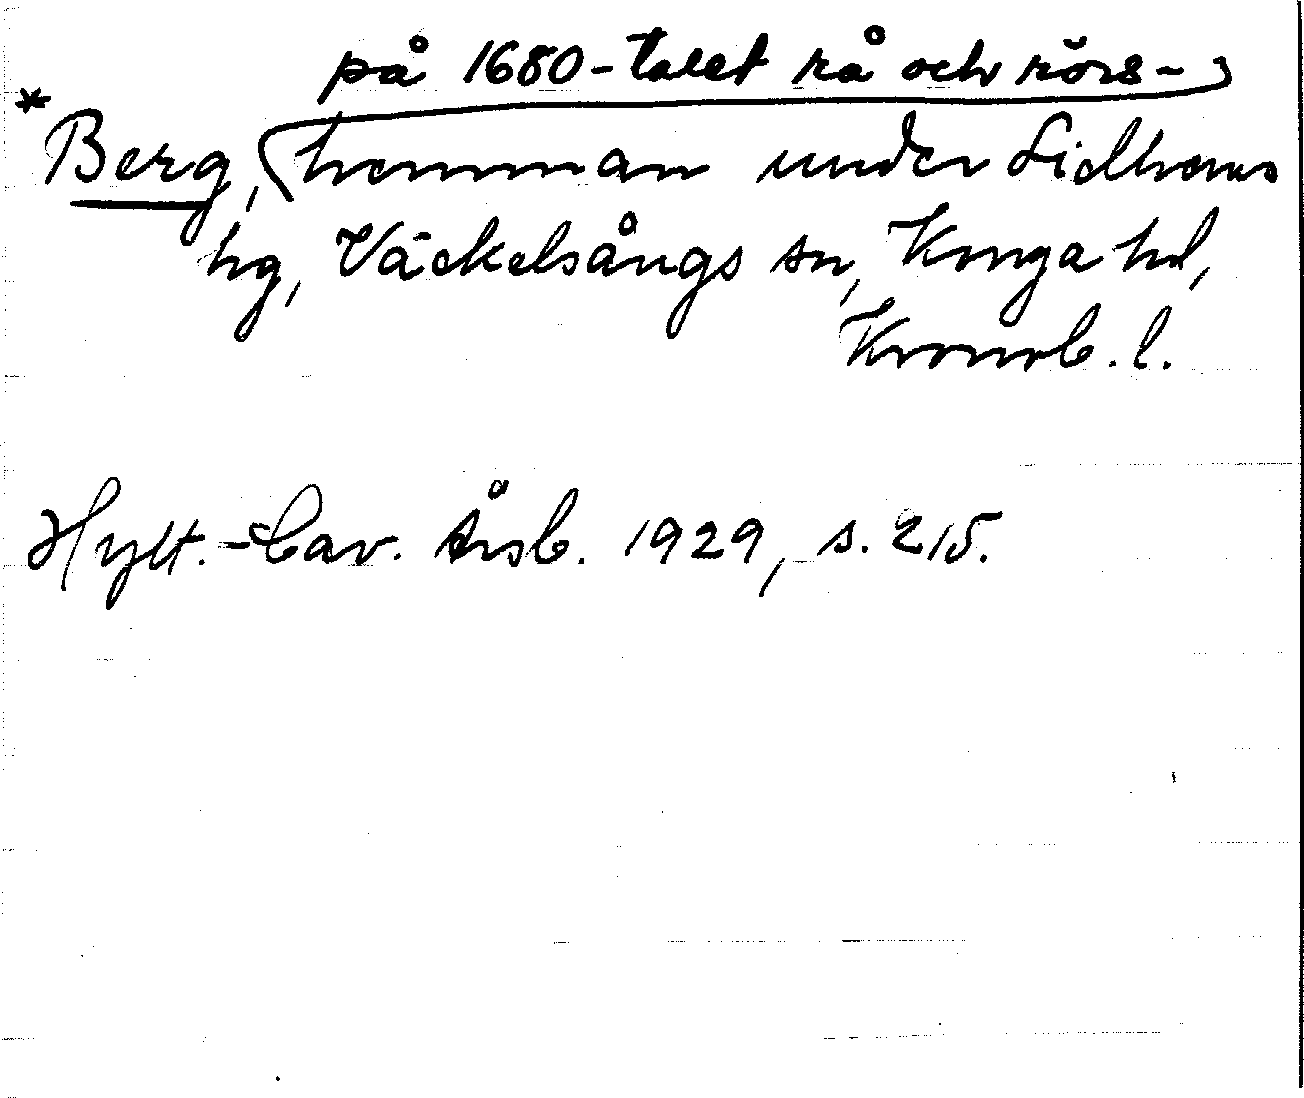 på 1680-talet rå och rörs-
*Berg, hemman under Lidhems
hg, Väckelsångs sn, Konga hd,
Kronob. l.
Hylt.-Cav. Årsb. 1929, s. 215.